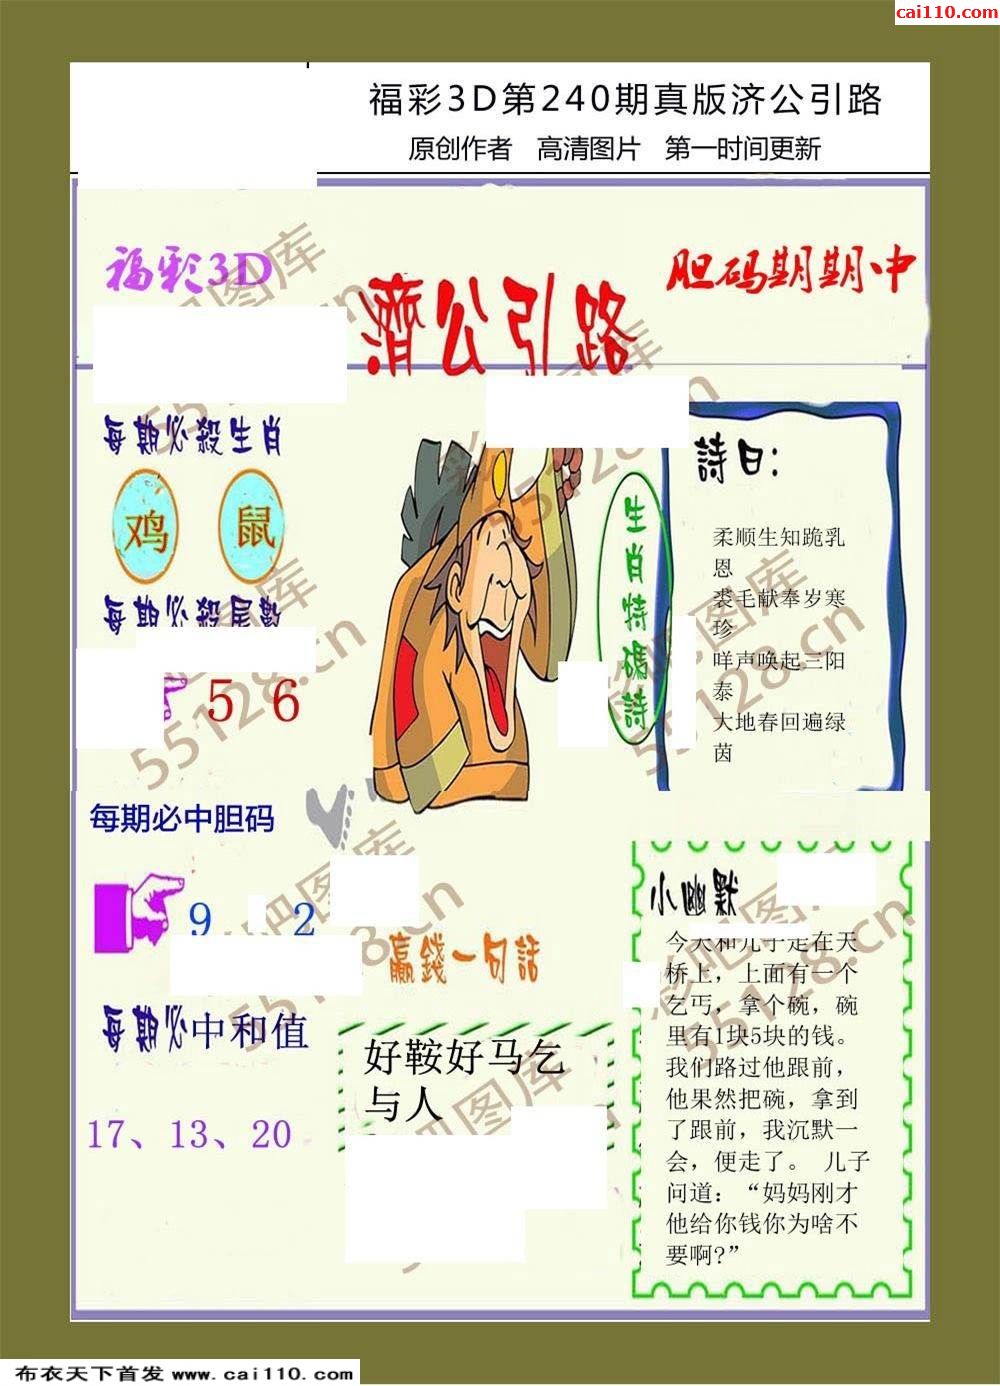 cai110.com
福彩3D第240期真版济公引路
原创作者 高清图片 第一时间更新
福彩3D
濟公引路
胆码期期中
每期必殺生肖
鸡 鼠
每期必殺尾數
5 6
生肖特碼詩
詩曰：
柔顺生知跪乳
恩
裘毛献奉岁寒
珍
咩声唤起三阳
泰
大地春回遍绿
茵
每期必中胆码
9 2
每期必中和值
17、13、20
赢錢一句話
好鞍好马乞
与人
小幽默
今天和儿子走在天
桥上，上面有一个
乞丐，拿个碗，碗
里有1块5块的钱。
我们路过他跟前，
他果然把碗，拿到
了跟前，我沉默一
会，便走了。 儿子
问道：“妈妈刚才
他给你钱你为啥不
要啊?”
彩吧图库
55128.cn
布衣天下首发 www.cai110.com